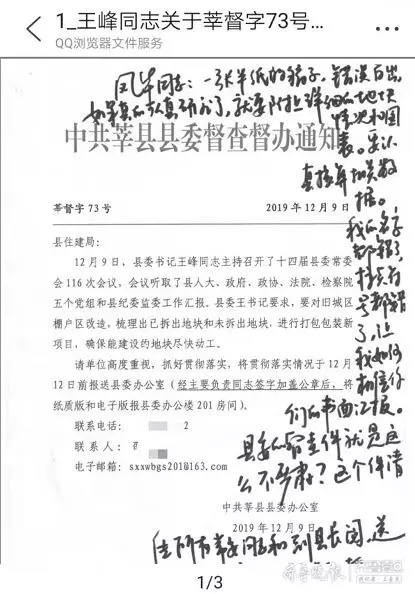 1_王峰同志关于莘督字73号...
QQ浏览器文件服务
同志：一张半纸的稿子，错误百出，
如果真的认真研究了，就要附上详细的地块
情况和图
表。要认
真核算相关数
据。
我的名字
都错了，
号都错
了，让
我如何
相信你
们的书面汇报。
县委的督查件就是这
么不严肃？这个件请
同志和副县长阅，送
中共莘县县委督查督办通知
莘督字73号 2019年12月9日
县住建局：
12月9日，县委书记王峰同志主持召开了十四届县委常委
会116次会议，会议听取了县人大、政府、政协、法院、检察院
五个党组和县纪委监委工作汇报。县委王书记要求，要对旧城区
棚户区改造，梳理出已拆出地块和未拆出地块，进行打包包装新
项目，确保能建设的地块尽快动工。
请单位高度重视，抓好贯彻落实，将贯彻落实情况于12月
12日前报送县委办公室（经主要负责同志签字加盖公章后，将
纸质版和电子版报县委办公楼201房间）。
联系电话： 2
联系人：
电子邮箱：sxxwbgs2018@163.com
中共莘县县委办公室
2019年12月9日
齐鲁晚报
1/3